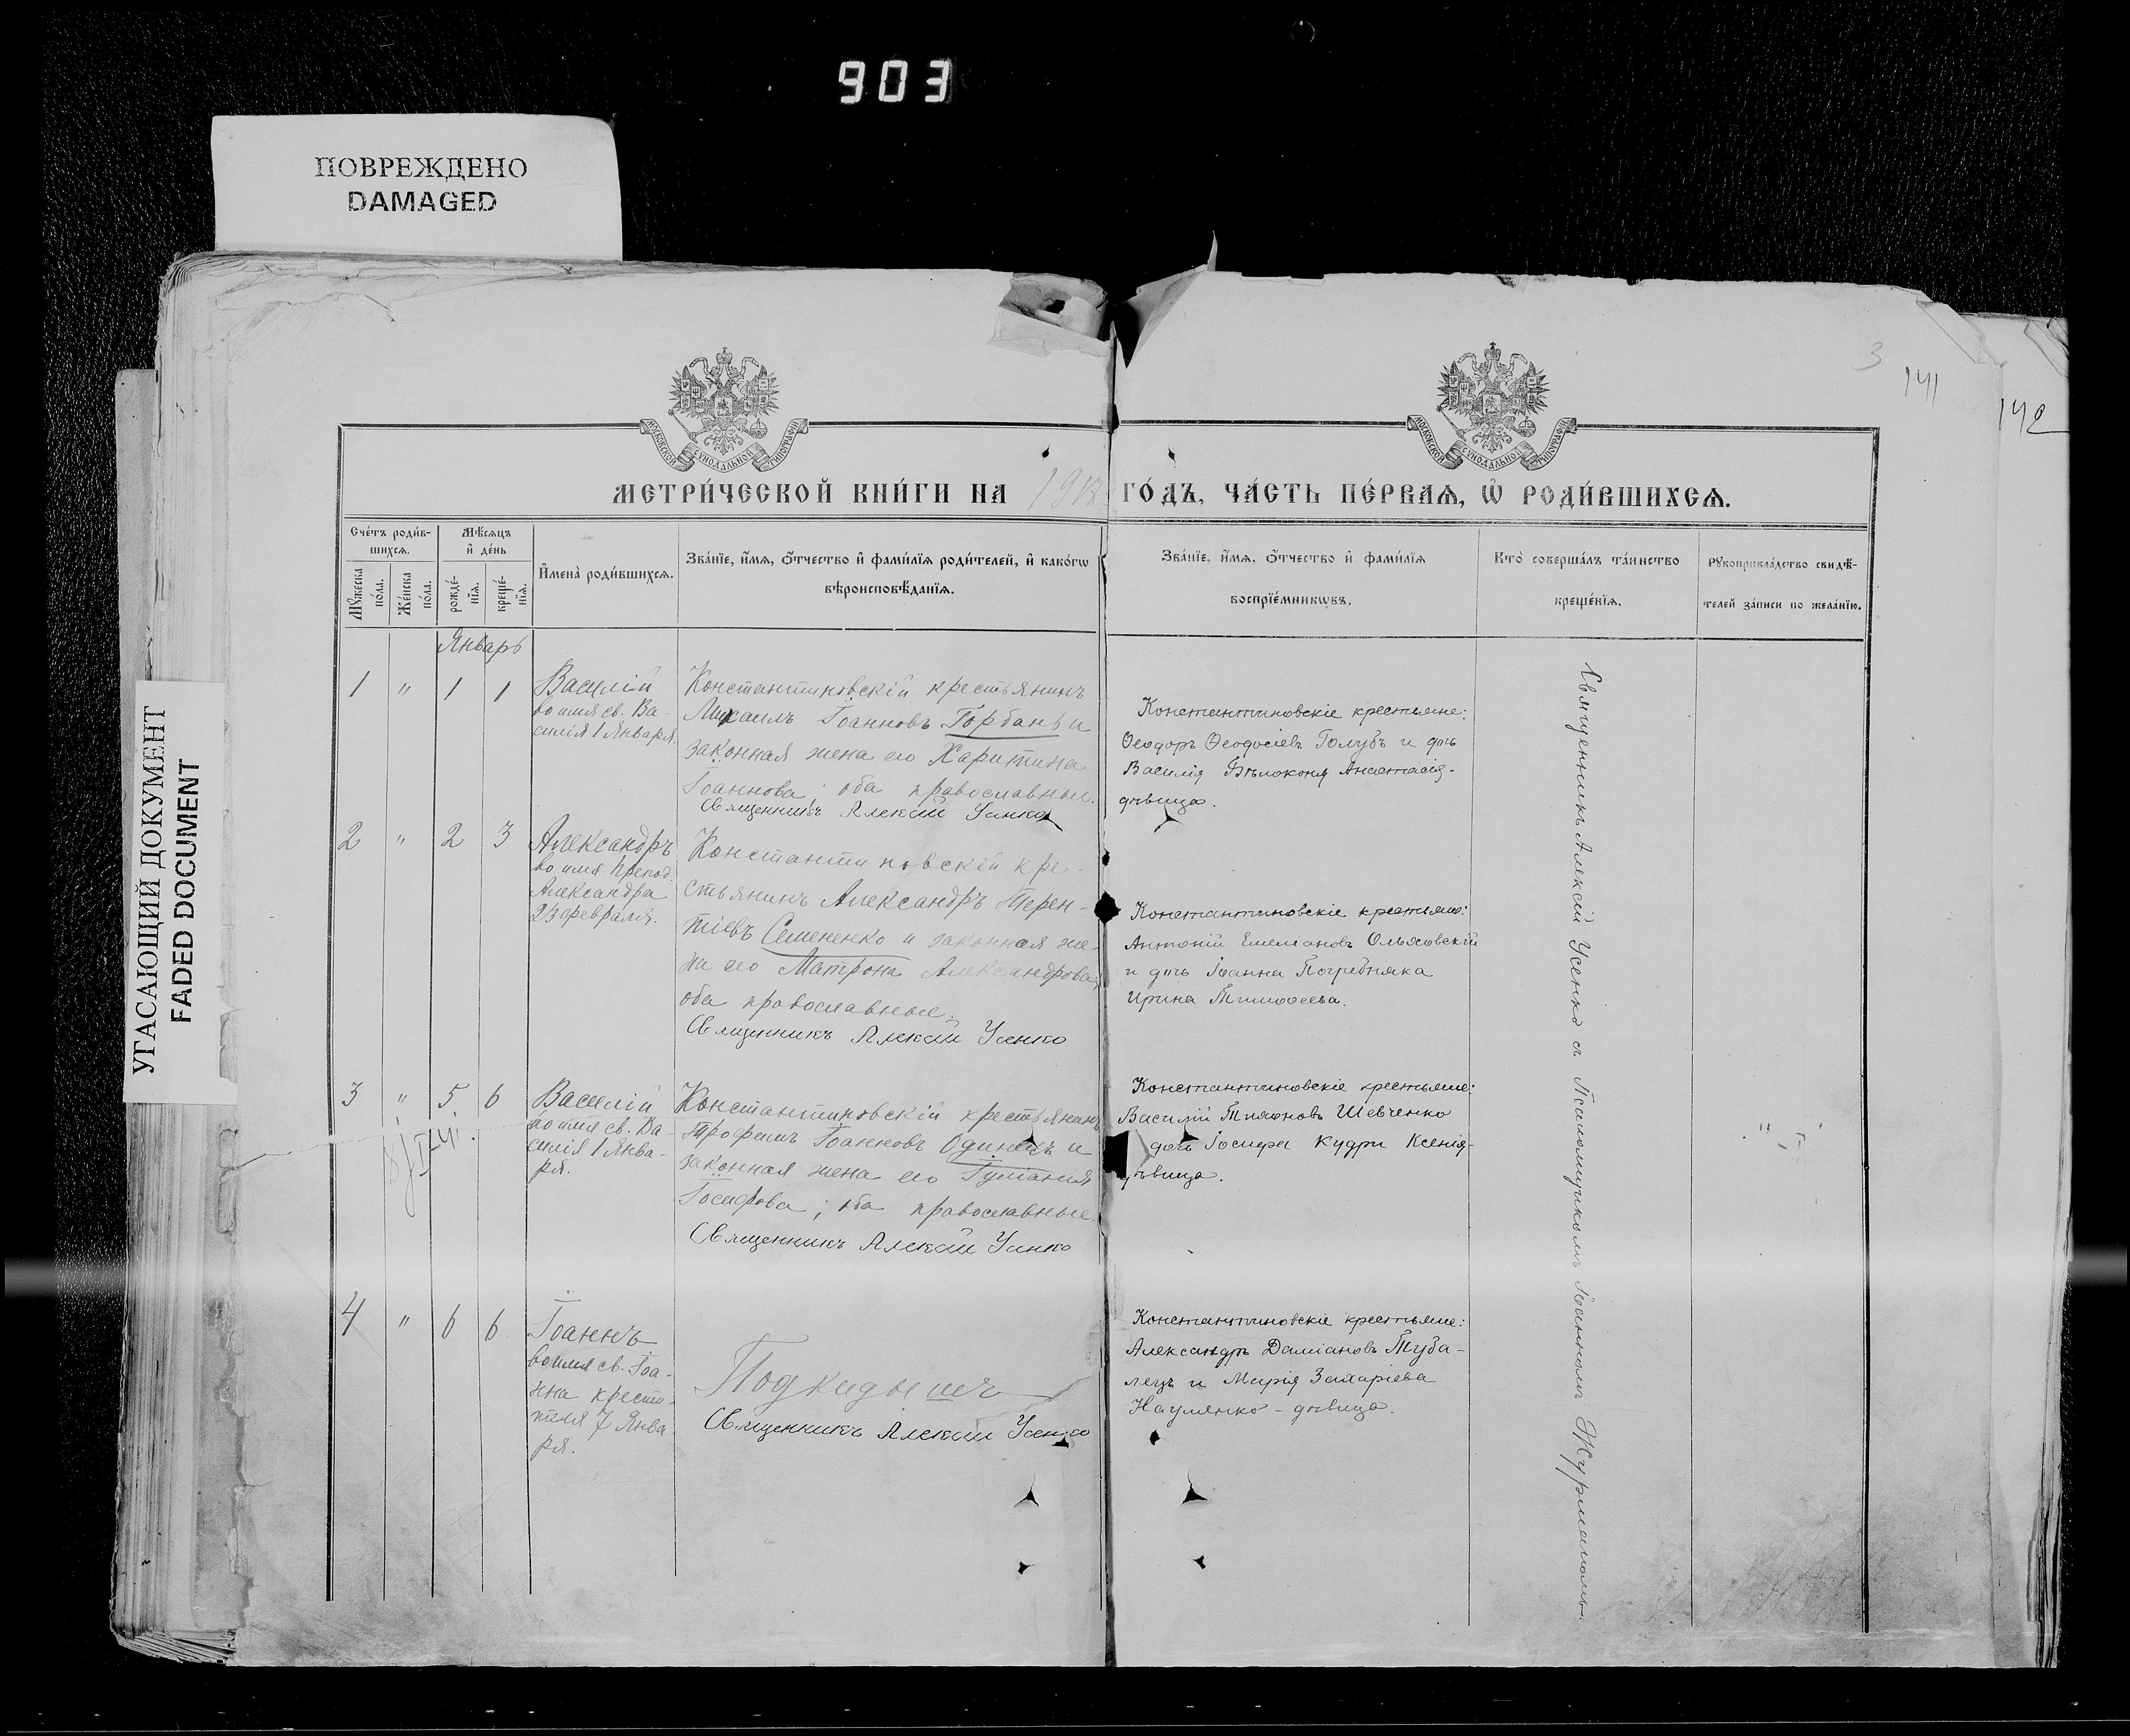 903
ПОВРЕЖДЕНО
DAMAGED
УГАСАЮЩИЙ ДОКУМЕНТ
FADED DOCUMENT
3
141
142
МОСКОВСКОЙ СѴНОДАЛЬНОЙ ТИПОГРАФІИ
МОСКОВСКОЙ СѴНОДАЛЬНОЙ ТИПОГРАФІИ
МЕТРИ́ЧЕСКОЙ КНИ́ГИ НА 1913 ГО́ДЪ, ЧА́СТЬ ПЕ́РВАѦ, Ѽ РОДИ́ВШИХСѦ.
Сче́тъ роди́в-
шихсѧ.
Мѣ́сѧцъ
и҆ де́нь
Мꙋ́жеска
по́ла.
Же́нска
по́ла.
рожде́-
нїѧ.
креще́-
нїѧ.
И҆мена̀ роди́вшихсѧ.
Зва́нїе, и҆́мѧ, ѻ҆́тчество и҆ фами́лїѧ роди́телей, и҆ како́гѡ
вѣроисповѣ́данїѧ.
Зва́нїе, и҆́мѧ, ѻ҆́тчество и҆ фами́лїѧ
воспрїе́мникѡвъ.
Кто̀ соверша́лъ та́инство
креще́нїѧ.
Рꙋкоприкла́дство свидѣ́-
телей за́писи по жела́нїю.
Январь
1 " 1 1
Василій
во имя св. Ва-
силія 1 Января.
Константиновскій крестьянинъ
Михаилъ Іоанновъ Горбань и
законная жена его Харитина
Іоаннова; оба православные.
Священникъ Алексій Усенко
Константиновскіе крестьяне:
Ѳеодоръ Ѳеодосіевъ Голубъ и дочь
Василія Бѣлоконя Анастасія-
дѣвица.
2 " 2 3
Александръ
во имя препод.
Александра
23 февраля.
Константиновскій кре-
стьянинъ Александръ Терен-
тіевъ Семененко и законная же-
на его Матрона Александрова;
оба православные.
Священникъ Алексій Усенко
Константиновскіе крестьяне:
Антоній Емеліановъ Ольховскій
и дочь Іоанна Погребняка
Ирина Тимоѳеева.
3 " 5 6
Василій
во имя св. Ва-
силія 1 Янва-
ря.
Константиновскій крестьянинъ
Трофимъ Іоанновъ Одинецъ и
законная жена его Іуліанія
Іосифова; оба православные.
Священникъ Алексій Усенко
Константиновскіе крестьяне:
Василій Тихоновъ Шевченко
дочь Іосифа Кудри Ксенія-
дѣвица.
4 " 6 6
Іоаннъ
во имя св. Іоа-
нна крести-
теля 7 Янва-
ря.
Подкидышъ
Священникъ Алексій Усенко
Константиновскіе крестьяне:
Александръ Даміановъ Туба-
лецъ и Марія Захаріева
Науменко - дѣвица.
Священникъ Алексій Усенко съ Псаломщикомъ Іоанномъ